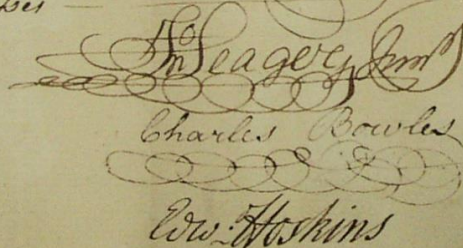 Jno Seagery Junr
Charles Bowles
Edwd. Hoskins